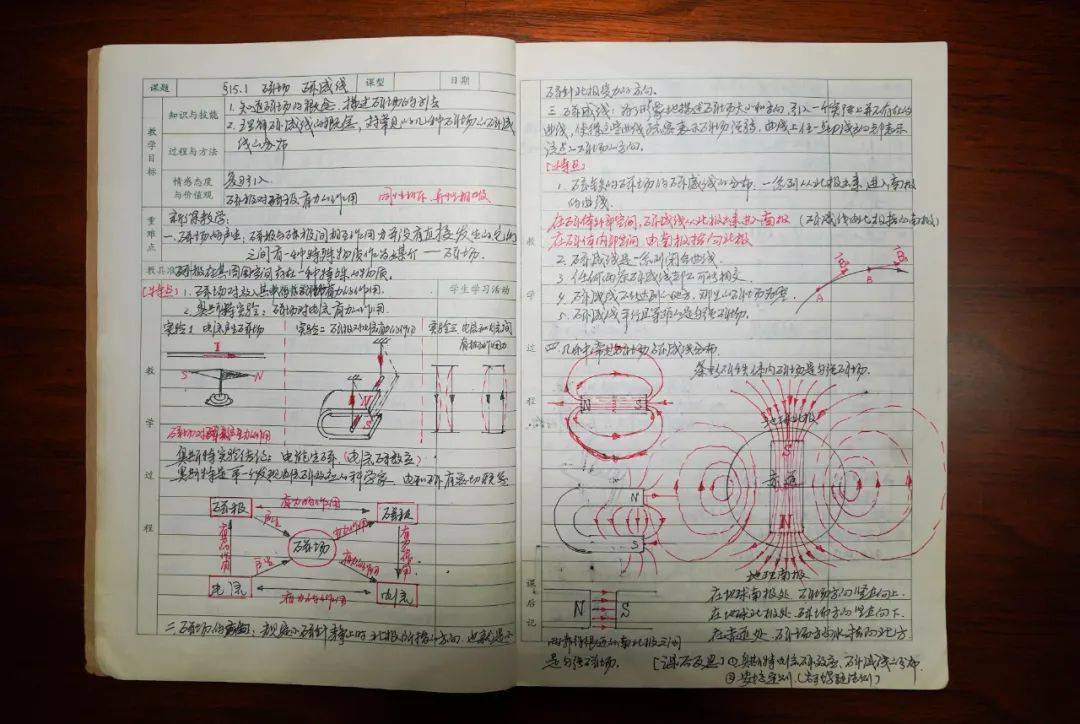 课题 §15.1 磁场 磁感线 课型 日期
教学目标
知识与技能
1. 知道磁场的概念,描述磁场的方法
2. 理解磁感线的概念,对常见的几种磁场的磁感
线的分布
过程与方法
情感态度与价值观
复习引入
磁极对磁极有力的作用 同性相斥,异性相吸
重难点
新课教学:
一.磁场的产生:磁极与磁极间相互作用力并没有直接发生的,它们
之间有一种特殊物质作为媒介——磁场.
教具准
磁极在其周围空间存在一种特殊的物质.
学生学习活动
[特点]
1. 磁场对放入其中的磁极有力的作用.
2. 奥斯特实验:磁场对电流有力的作用.
实验1 电流产生磁场 实验二 磁极对电流有力的作用 实验三 电流和电流间
有相互作用力
I
S N
N
S
奥斯特实验结论:电能生磁.(电流磁效应)
奥斯特是第一个发现电流磁效应的科学家. 电和磁有密切联系
教学过程
磁极 有力的作用 磁极
产生 有力的作用
磁场
有力的作用
产生 有力的作用
电流 有力的作用 电流
二.磁场的方向:规定小磁针静止时北极所指的方向,也就是小
磁针北极受力的方向.
三.磁感线:为了形象地描述磁场大小和方向,引入一个实际上并不存在的
曲线,使得这些曲线疏密表示磁场强弱,曲线上任一点切线方向即表示
该点的磁场的方向.
[特点]
1. 磁铁的磁场的磁感线的分布.一系列从北极出来,进入南极
的曲线.
在磁体外部空间,磁感线从北极出来进入南极 (磁感线由北极指向南极)
在磁体内部空间 由南极指向北极
2. 磁感线是一系列闭合曲线.
3. 任何两条磁感线都不可能相交.
4. 磁感线越密的地方,那里的磁场越强.
5. 磁感线平行且等距的是匀强磁场.
A B
四.几种常见的磁场磁感线分布.
条形磁铁体内磁场是匀强磁场.
教学过程
N S
地球北极
S
赤道
N
N
S
地球南极
课后记
N S
在地球南极处.磁场方向竖直向上.
在地球北极处.磁场方向竖直向下.
在赤道处.磁场方向水平指向北方
两靠得很近的南北极之间
是匀强磁场.
[课后反思] ①奥斯特电流磁效应,磁感线的分布.
②安培定则.(右手螺旋法则)